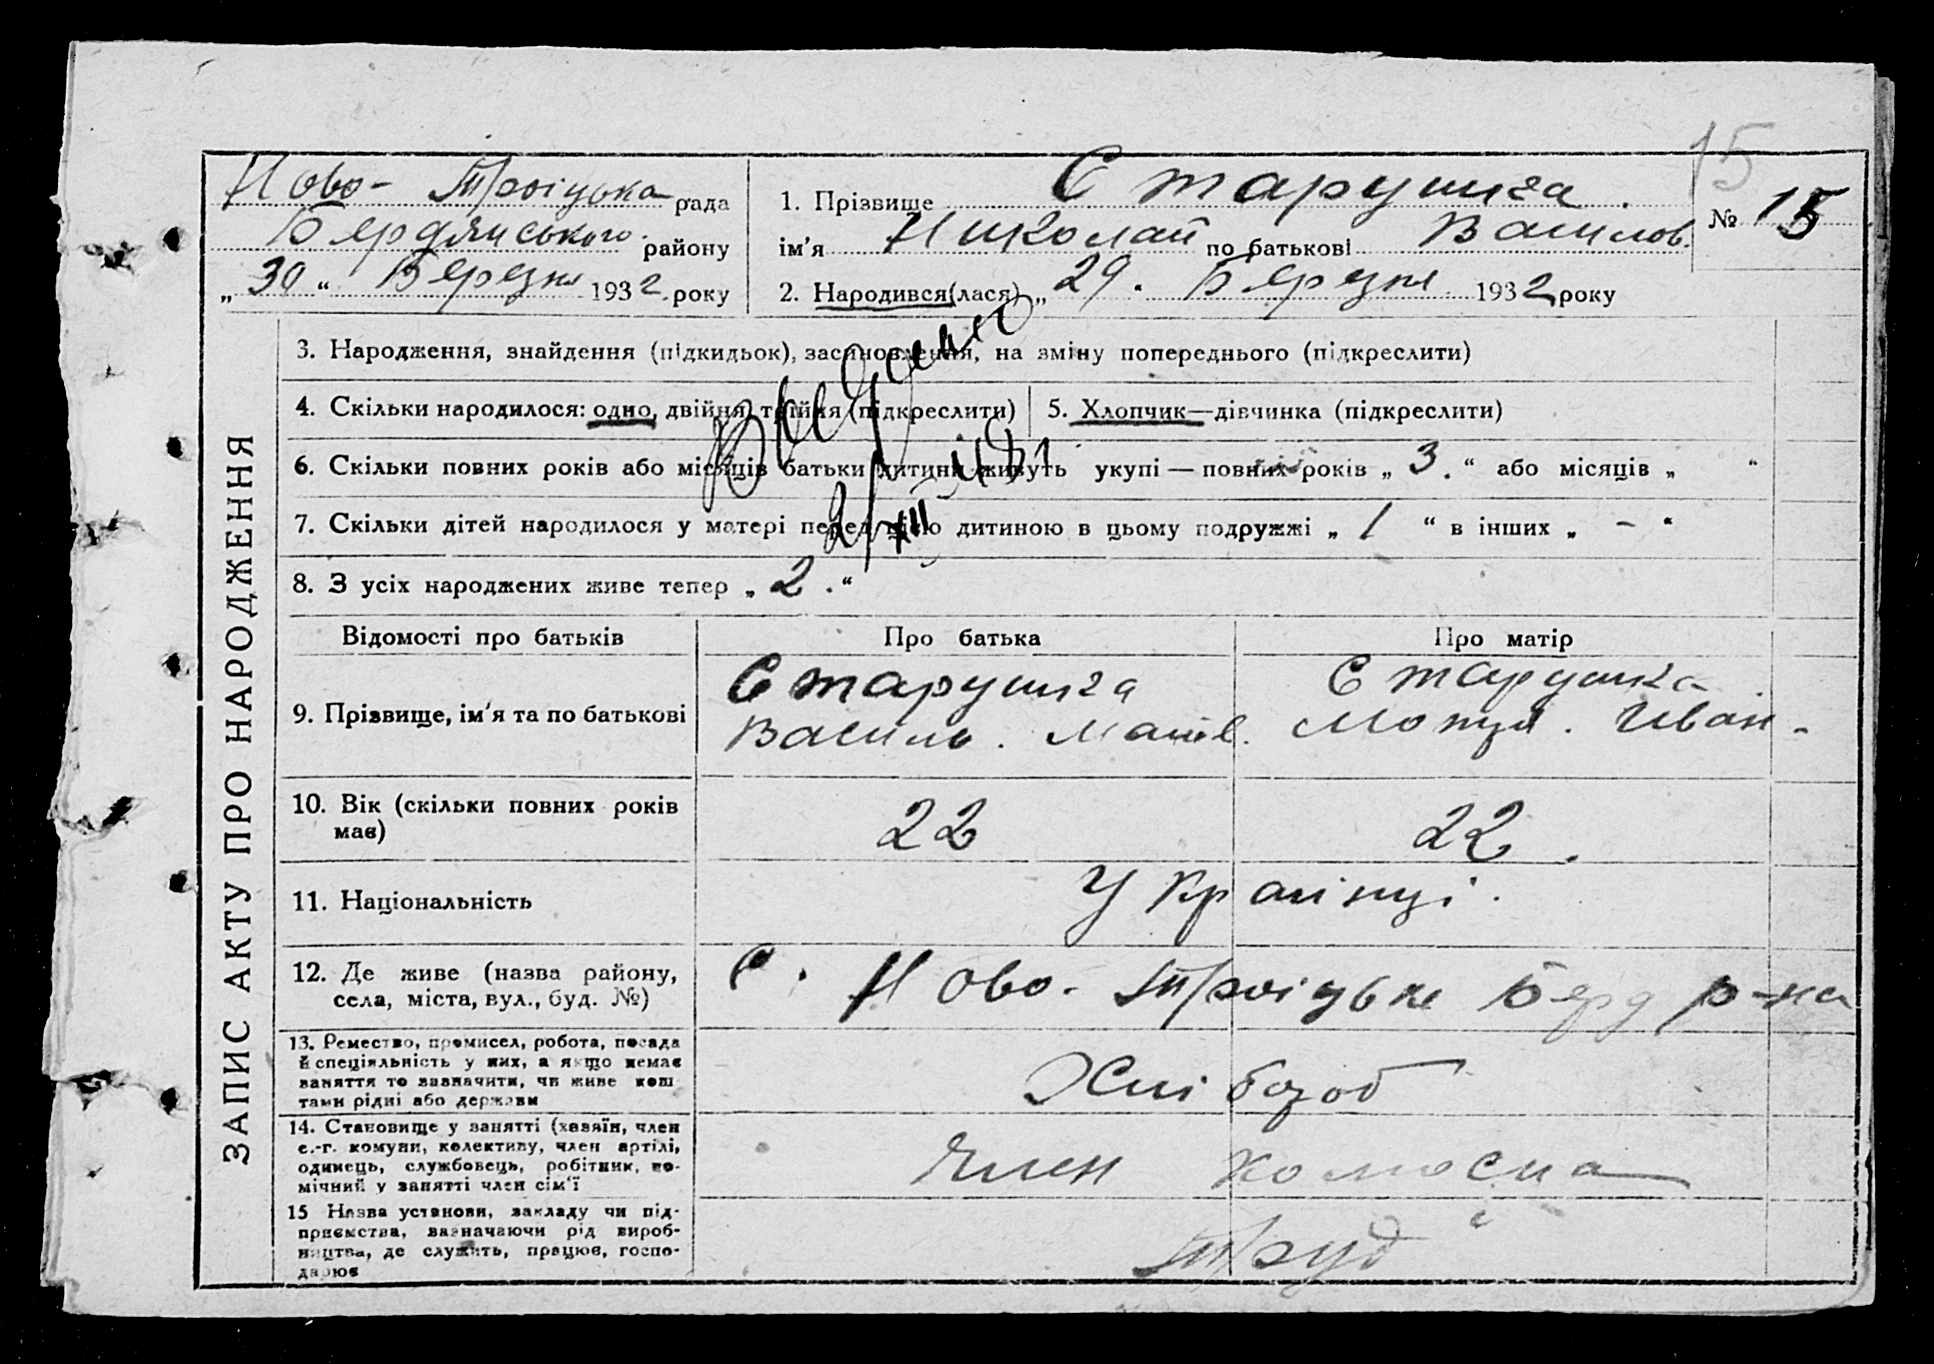 15
Ново-Троіцька рада
Бердянського району
„30“ Березня 1932 року
1. Прізвище Старушка.
№ 15
ім'я Николай по батькові Василов.
2. Народився(лася) „29. Березня 1932 року
ЗАПИС АКТУ ПРО НАРОДЖЕННЯ
3. Народження, знайдення (підкидьок), засиновлення, на зміну попереднього (підкреслити)
4. Скільки народилося: одно, двійня, трійня (підкреслити)
5. Хлопчик—дівчинка (підкреслити)
6. Скільки повних років або місяців батьки дитини живуть укупі — повних років „ 3. “ або місяців „ “
7. Скільки дітей народилося у матері перед цією дитиною в цьому подружжі „ 1 “ в інших „ – “
8. З усіх народжених живе тепер „ 2. “
Відомості про батьків
Про батька
Про матір
9. Прізвище, ім'я та по батькові
Старушка
Василь. Матв.
Старушка
Иван-
10. Вік (скільки повних років
має)
22
22.
11. Національність
Українці.
12. Де живе (назва району,
села, міста, вул., буд. №)
с. Ново-Троіцьке Берд р-на
13. Ремество, промисел, робота, посада
й спеціяльність у них, а якщо немає
заняття то зазначити, чи живе кош
тами рідні або держави
Хлібороб
14. Становище у занятті (хазяїн, член
с.-г. комуни, колективу, член артілі,
одинець, службовець, робітник, по-
мічний у занятті член сім'ї
Член
15 Назва установи, закладу чи під-
приємства, зазначаючи рід вироб-
ництва, де служить, працює, госпо-
дарює
Труд